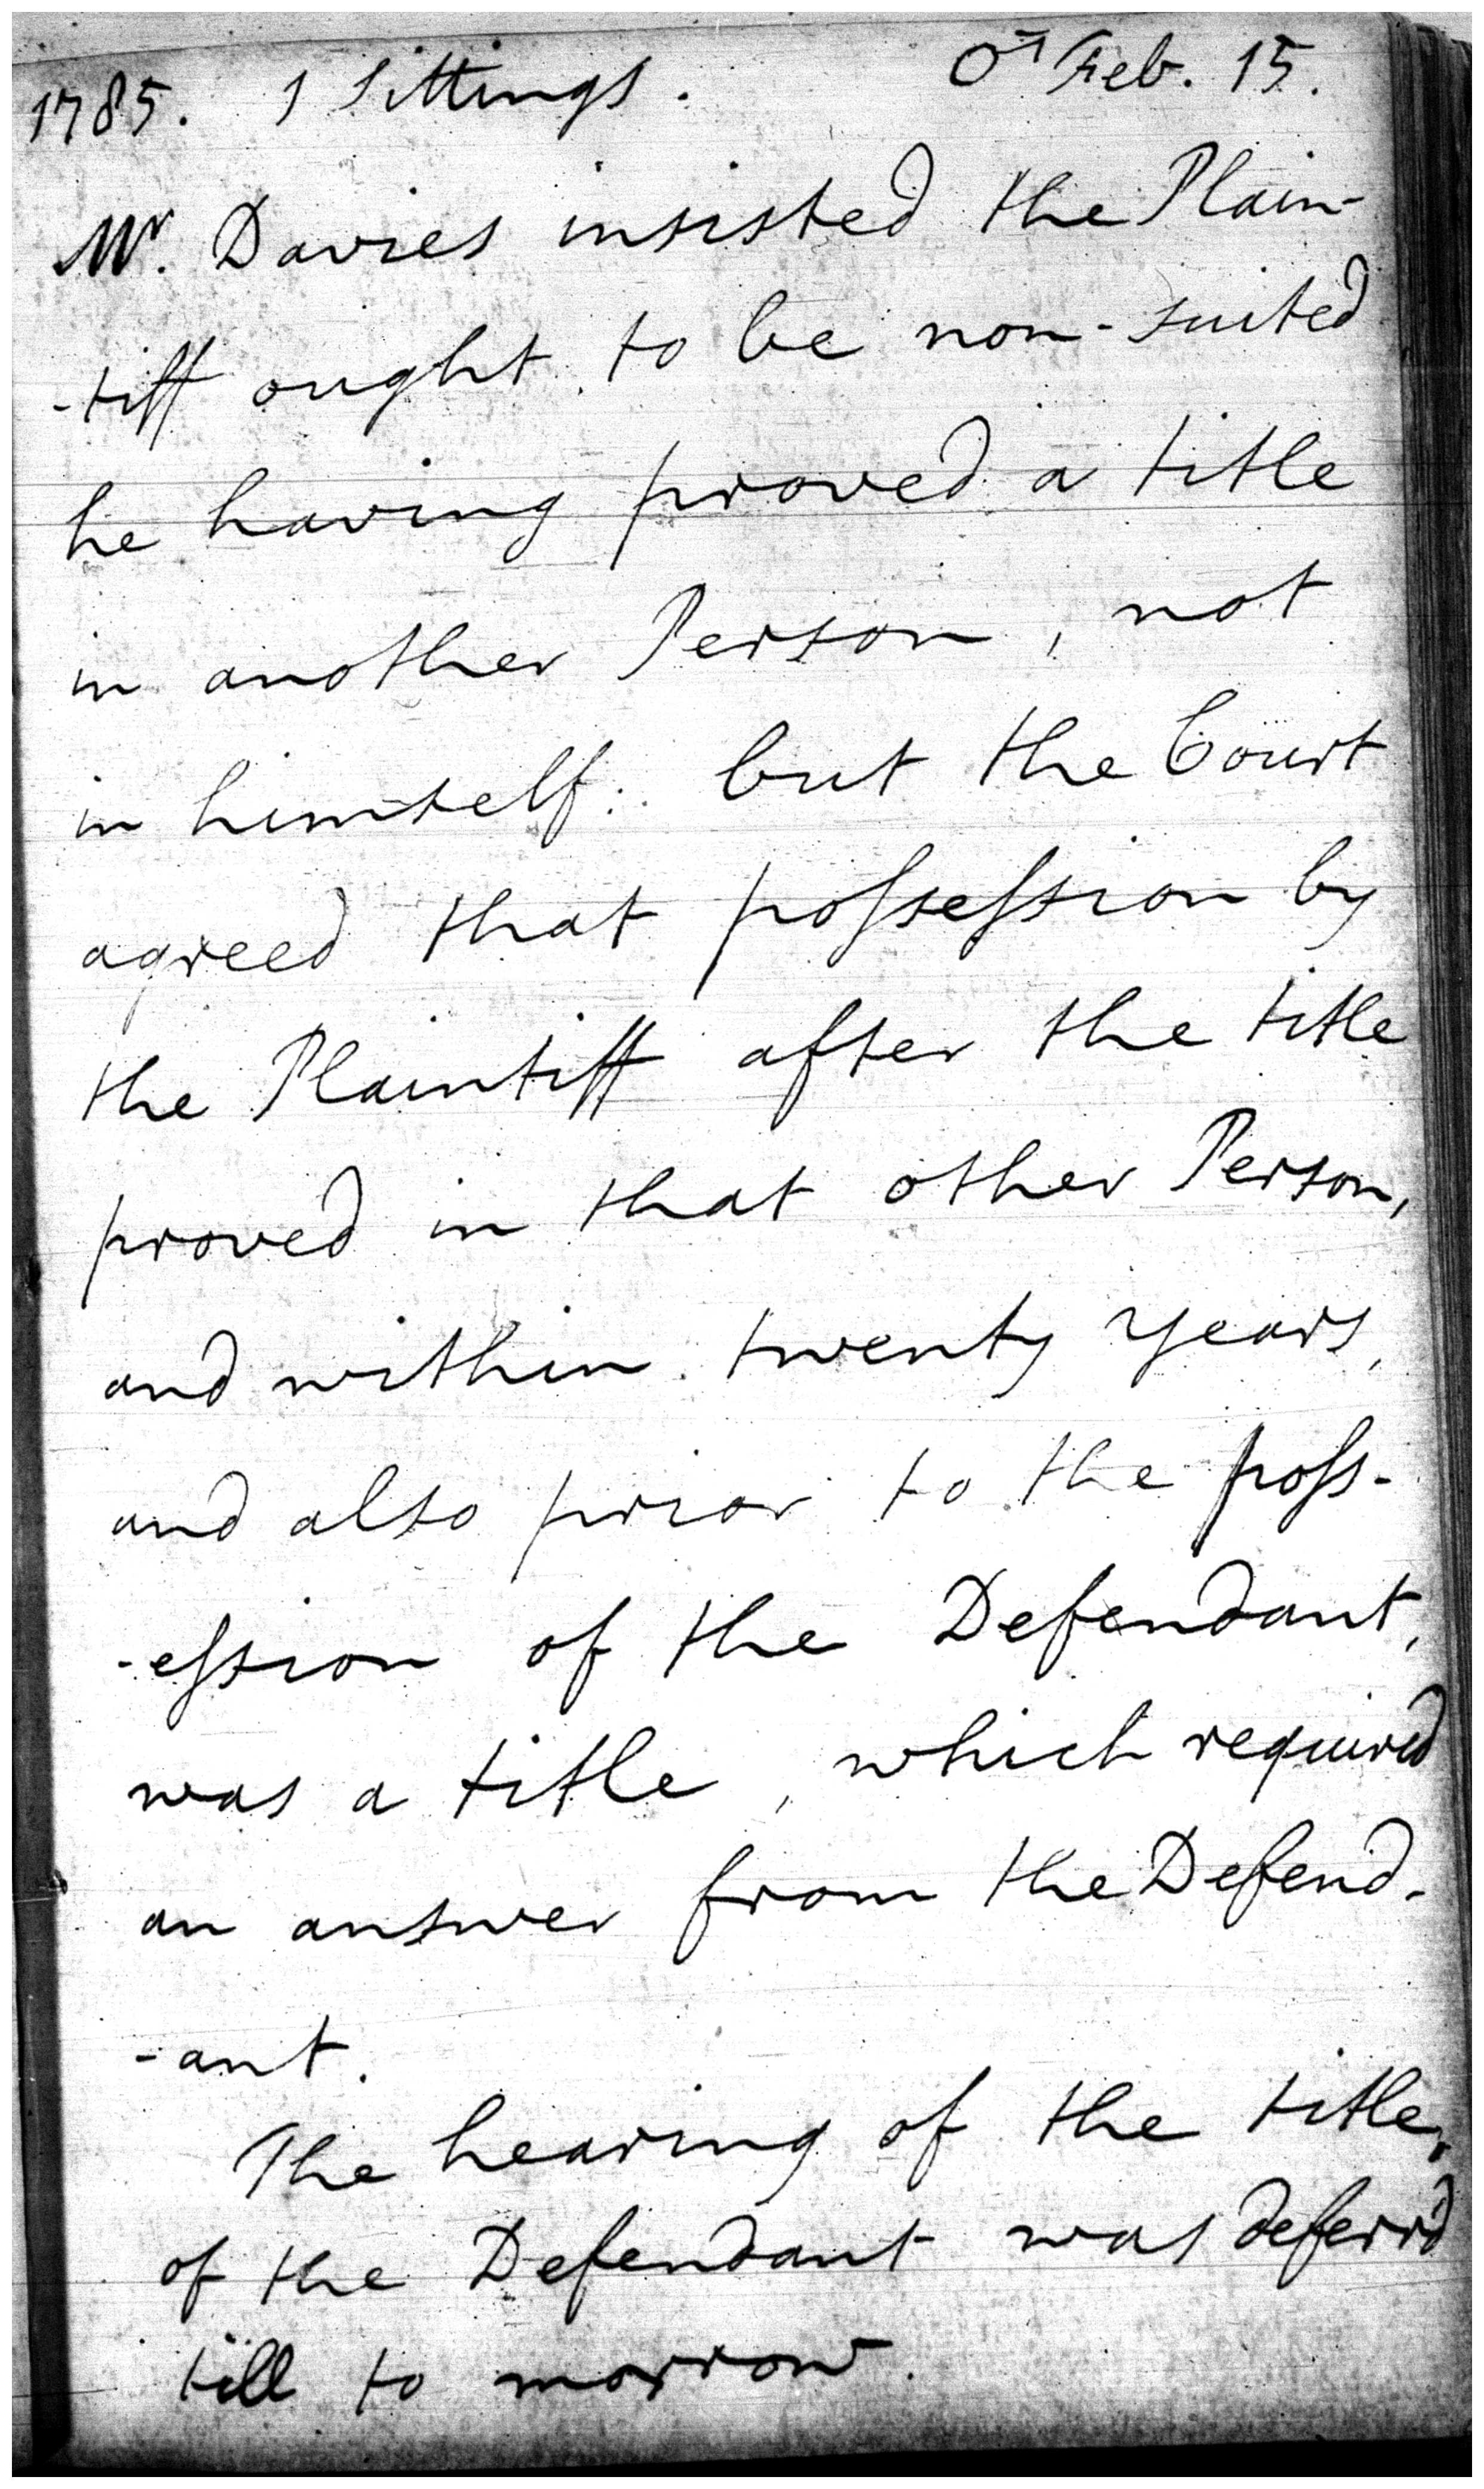 1785. 1 Sittings. ♂ Feb. 15.
Mr. Davies insisted the Plain-
-tiff ought to be non-suited
he having proved a title
in another Person, not
in himself: but the Court
agreed that poſseſsion by
the Plaintiff after the title
proved in that other Person,
and within twenty years,
and also prior to the poſs-
-eſsion of the Defendant,
was a title, which required
an answer from the Defend-
-ant.
The hearing of the title,
of the Defendant was deferrd
till to morrow.